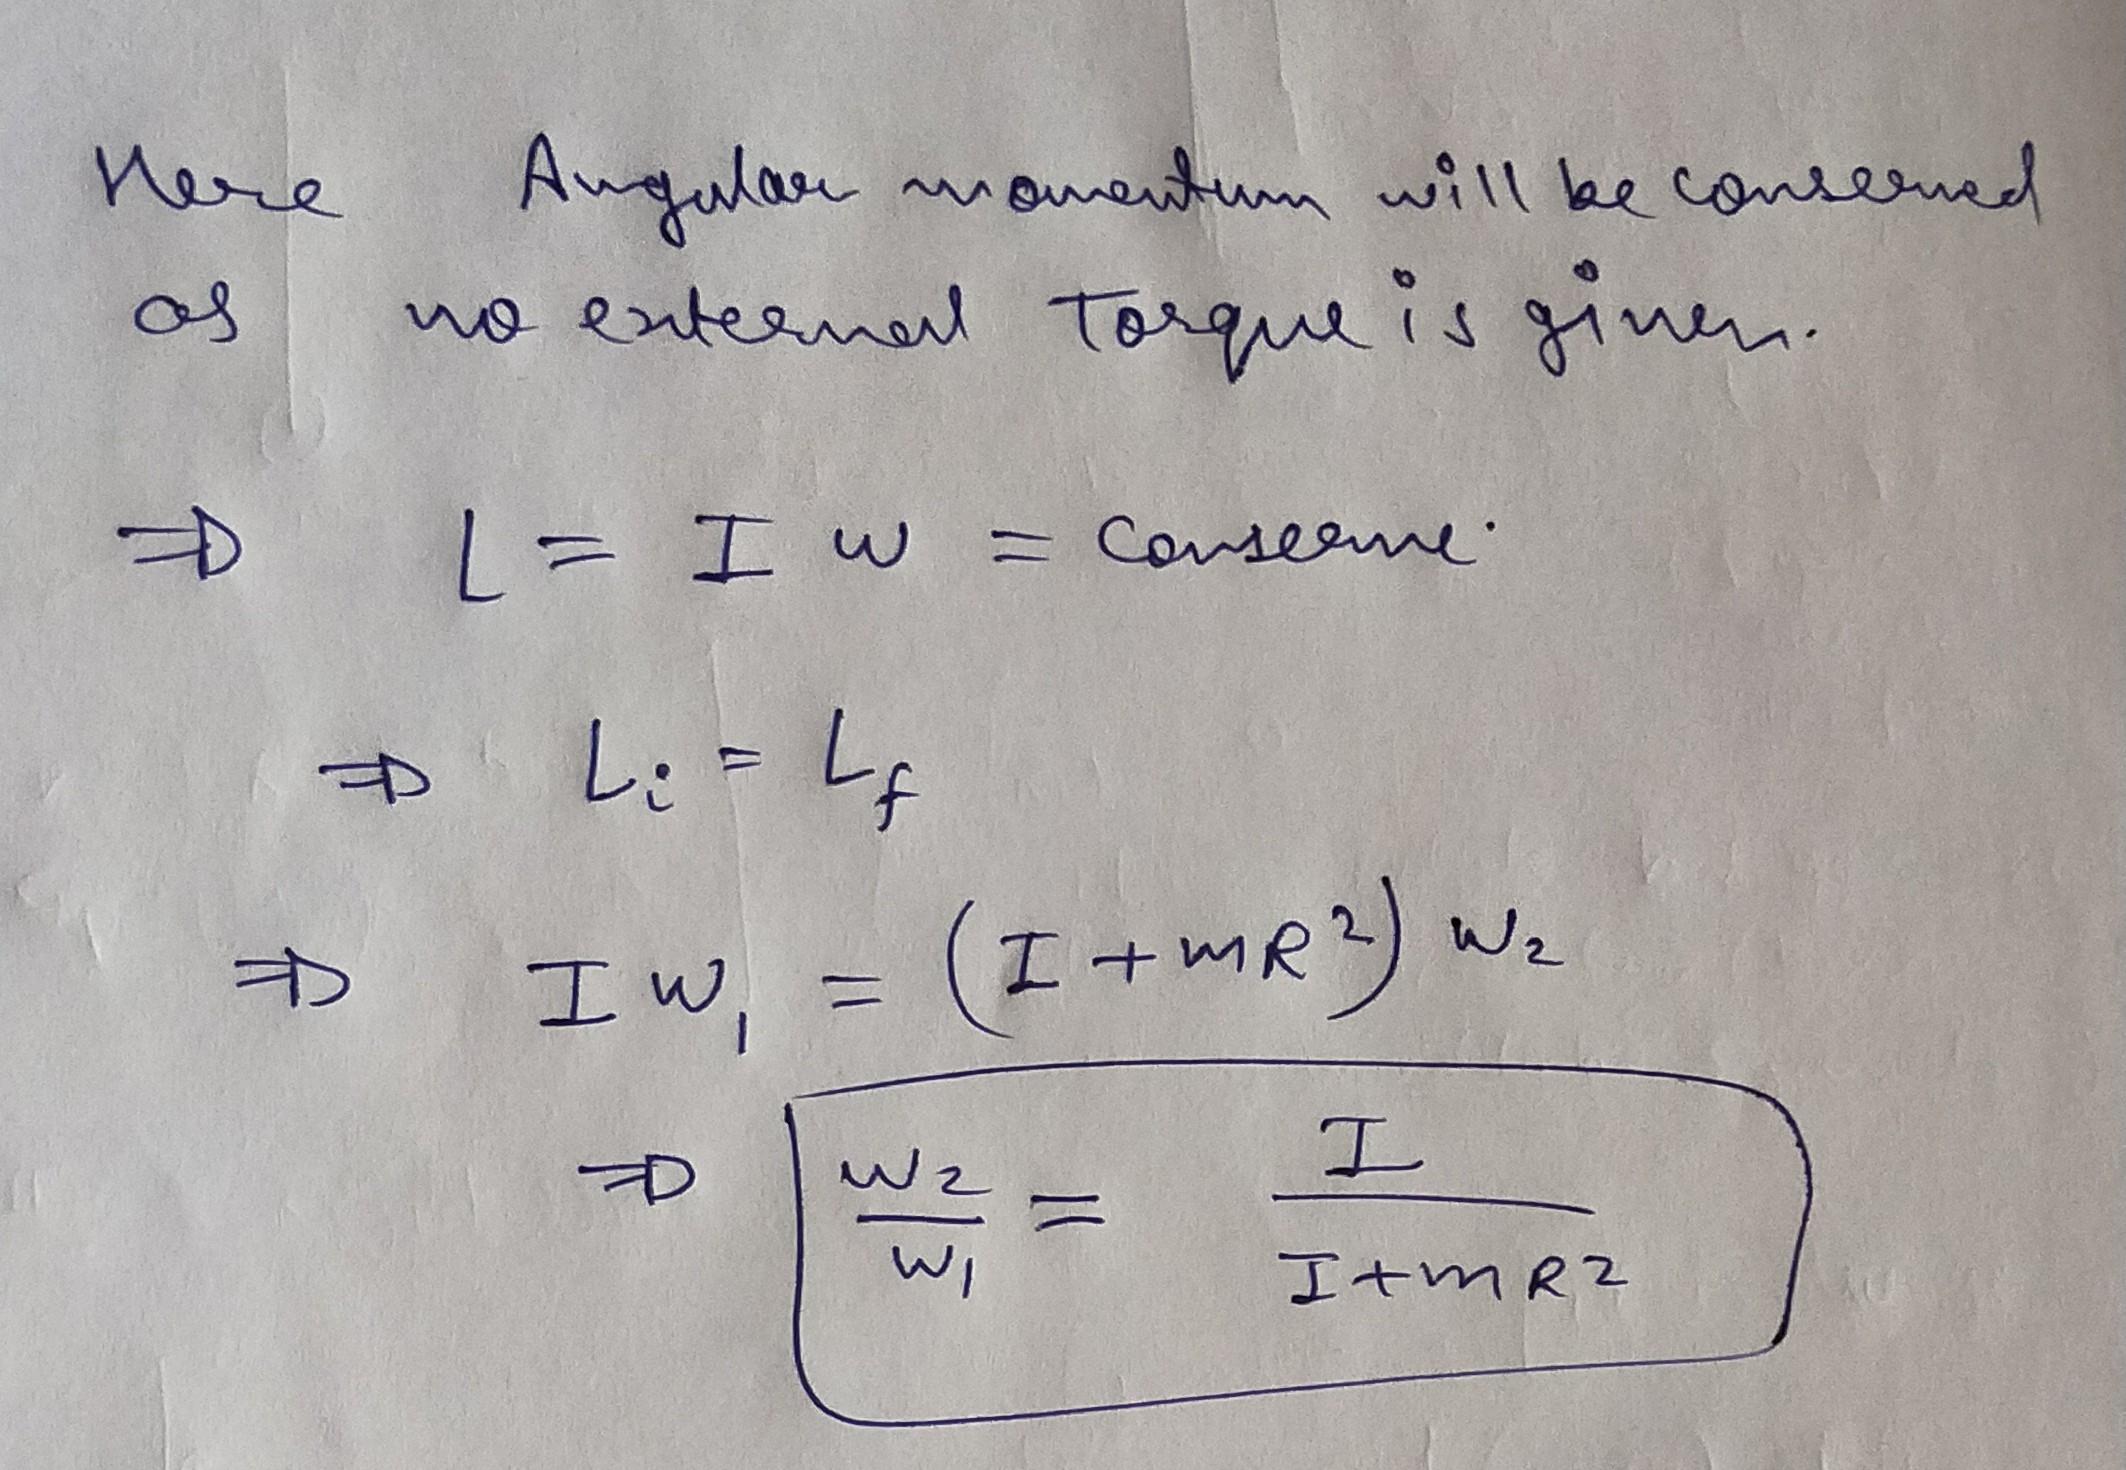 Here Angular momentum will be conserved
as no external Torque is given.
⇒ L = I w = Conserve.
⇒ Li = Lf
⇒ I w₁ = (I + mR²) w₂
⇒ w₂/w₁ = I/(I+mR²)